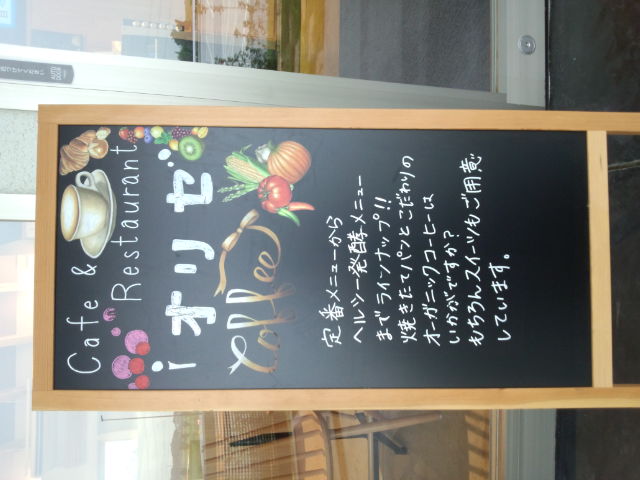 Cafe &
Restaurant
iオリゼ
Coffee
定番メニューから
ヘルシー発酵メニュー
までラインナップ!!
焼きたてパンとこだわりの
オーガニックコーヒーは
いかがですか?
もちろんスイーツもご用意
しています。